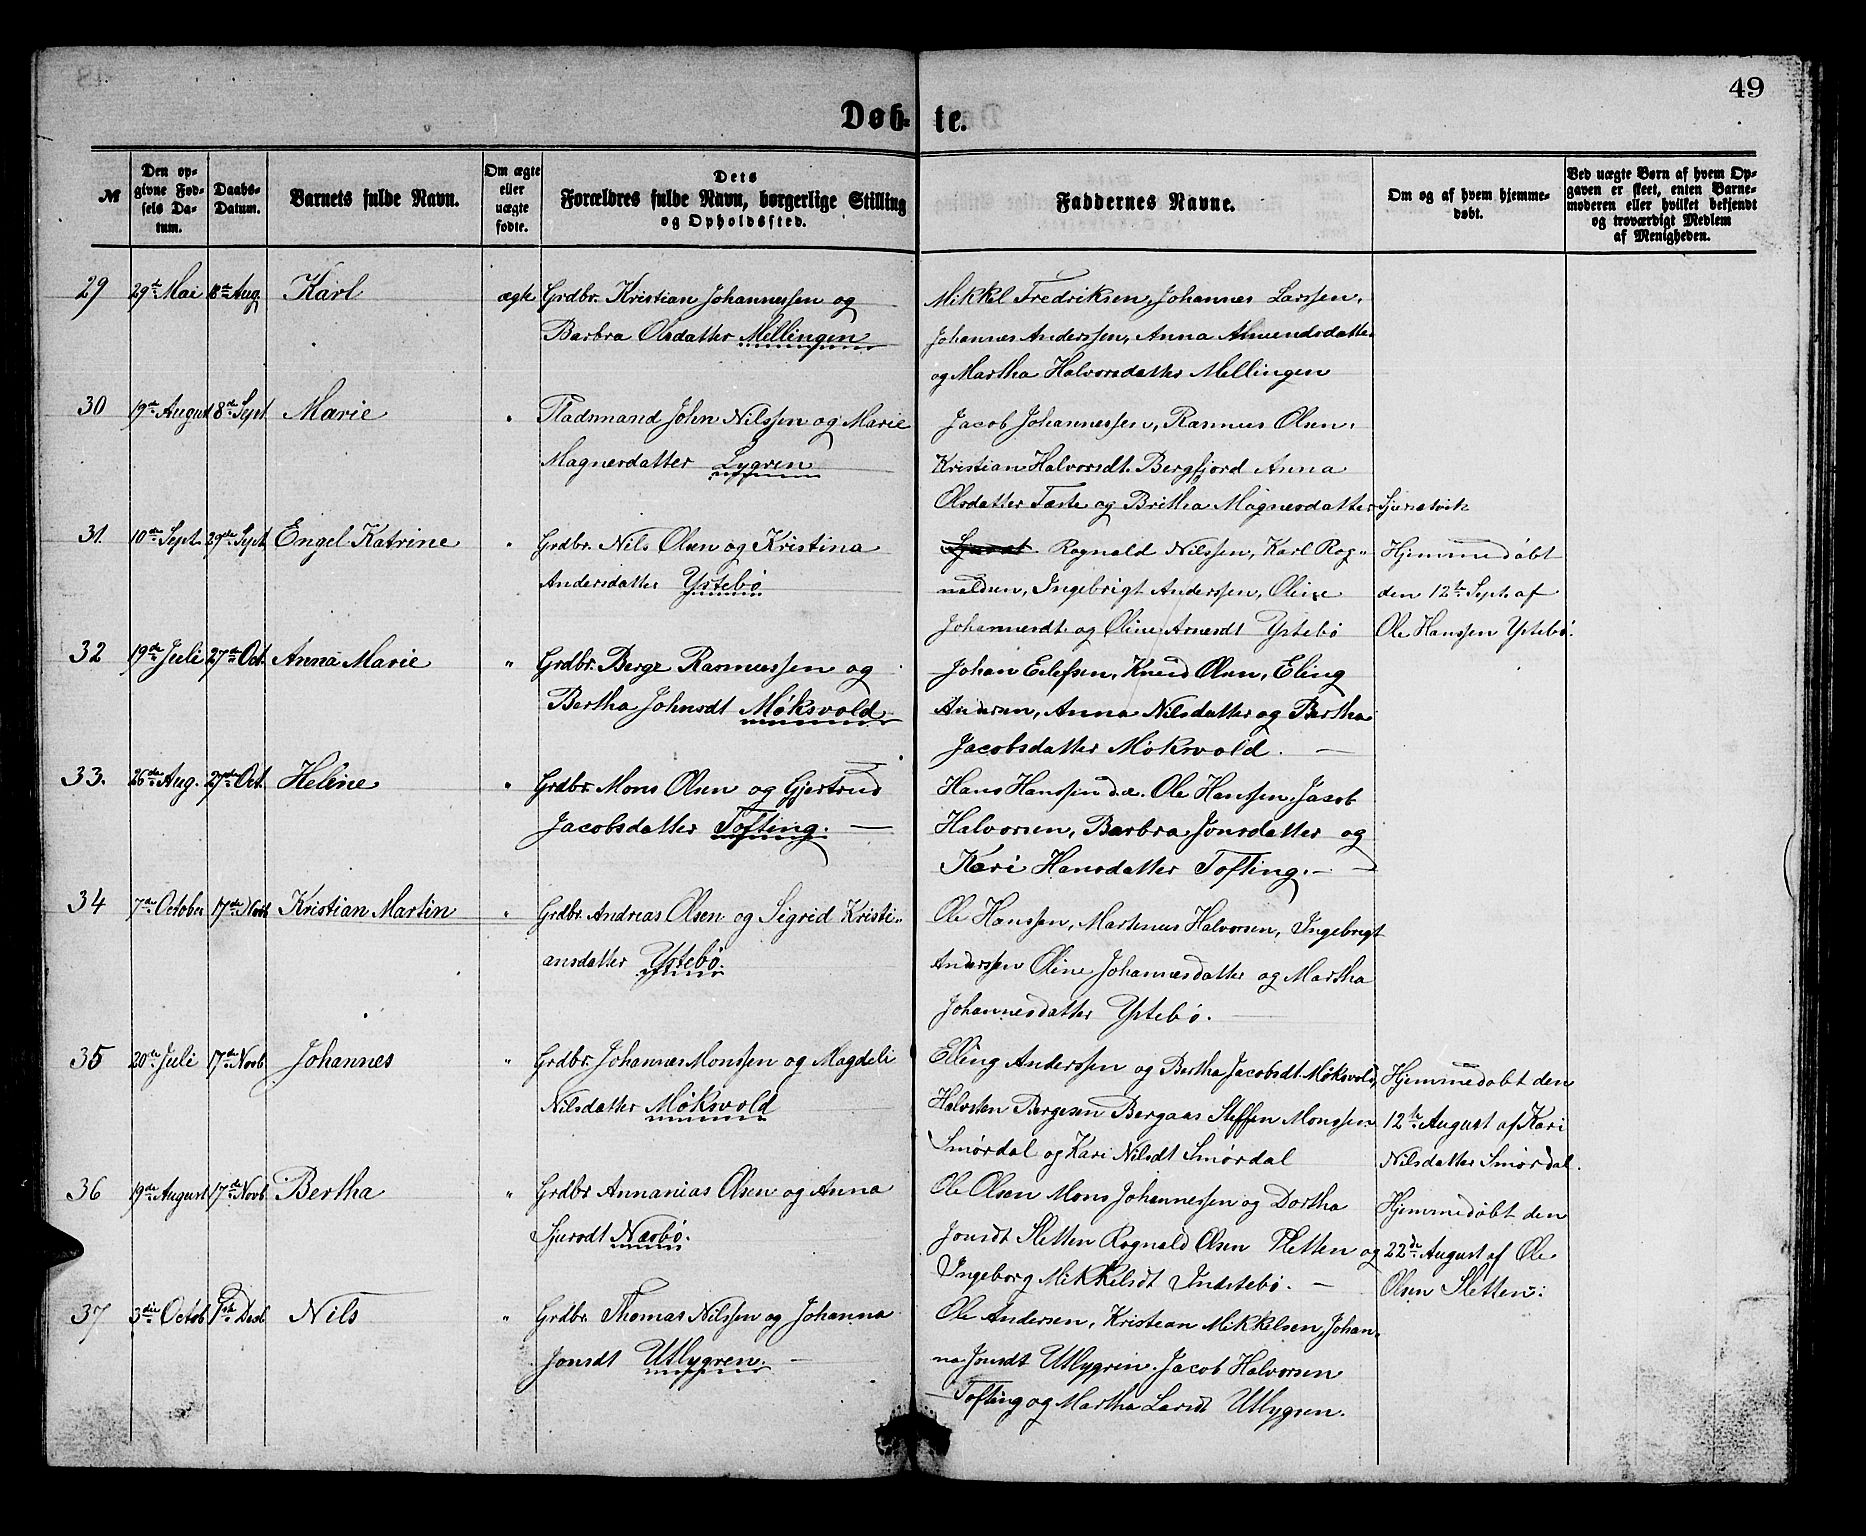 49
Døbte.
№
Den opgivne Fødsels Datum.
Daabs-Datum.
Barnets fulde Navn.
Om ægte eller uægte fødte.
Dets Forældres fulde Navn, borgerlige Stilling og Opholdssted.
Faddernes Navne.
Om og af hvem hjemmedøbt.
Ved uægte Børn af hvem Opgaven er skeet, enten Barnemoderen eller hvilket bekjendt og troværdigt Medlem af Menigheden.
29 29de Mai 18de Aug. Karl ægte Grdbr. Kristian Johannessen og
Barbra Olsdatter Mellingen
Mikkel Fredriksen, Johannes Larssen,
Johannes Anderssen, Anna Amundsdatter
og Martha Halvorsdatter Mellingen
30 19de August 8de Sept. Marie " Pladsmand John Nilssen og Marie
Magnesdatter Lygren
Jacob Johannessen, Rasmus Olsen,
Kristian Halvorsdt. Bergfjord Anna
Olsdatter Taste og Britha Magnesdatter Sjurstvik
31. 10de Sept. 29de Sept. Engel Katrine " Grdbr. Nils Olsen og Kristina
Andersdatter Ystebø
Rognald Nilssen, Karl Rog-
naldsen, Ingebrigt Anderssen, Oline
Johannesdt. og Oline Arnesdt Ystebø
Hjemmedøbt
den 12te Sept. af
Ole Hanssen Ystebø.
32 19de Juli 27de Oct. Anna Marie " Grdbr. Berge Rasmussen og
Bertha Johnsdt Møksvold
Johan Eilefsen, Knud Olsen, Eling
Andersen, Anna Nilsdatter og Bertha
Jacobsdatter Møksvold.
33. 26de Aug. 27de Oct. Heline " Grdbr. Mons Olsen og Gjertrud
Jacobsdatter Tofting.
Hans Hanssen d.æ. Ole Hanssen, Jacob
Halvorsen, Barbra Jonsdatter og
Kari Hansdatter Tofting.
34 7de October 17de Novb. Kristian Martin " Grdbr. Andreas Olsen og Sigrid Kristi-
ansdatter Ystebø.
Ole Hanssen, Martinus Halvorsen, Ingebrigt
Anderssen Oline Johannesdatter og Martha
Johannesdatter Ystebø.
35 20de Juli 17de Novb. Johannes " Grdbr. Johannes Monssen og Magdeli
Nilsdatter Møksvold
Elling Anderssen og Bertha Jacobsdt Møksvold,
Halvsten Bergesen Bergaas Steffen Monssen
Smørdal og Kari Nilsdt Smørdal
Hjemmedøbt den
12te August af Kari
Nilsdatter Smørdal.
36 19de August 17de Novb. Bertha " Grdbr. Annanias Olsen og Anna
Sjursdt Næsbø.
Ole Olsen Mons Johannessen og Dortha
Jonsdt Sletten Rognald Olsen Sletten og
Ingeborg Mikkelsdt Indstebø.
Hjemmedøbt den
22de August af Ole
Olsen Sletten.
37 3die Octob. 1ste Decb. Nils " Grdbr. Thomas Nilssen og Johanna
Jonsdt Utlygren.
Ole Andersen, Kristian Mikkelsen, Johan-
na Jonsdt Utlygren. Jacob Halvorsen
Tofting og Martha Larsdt Utlygren.